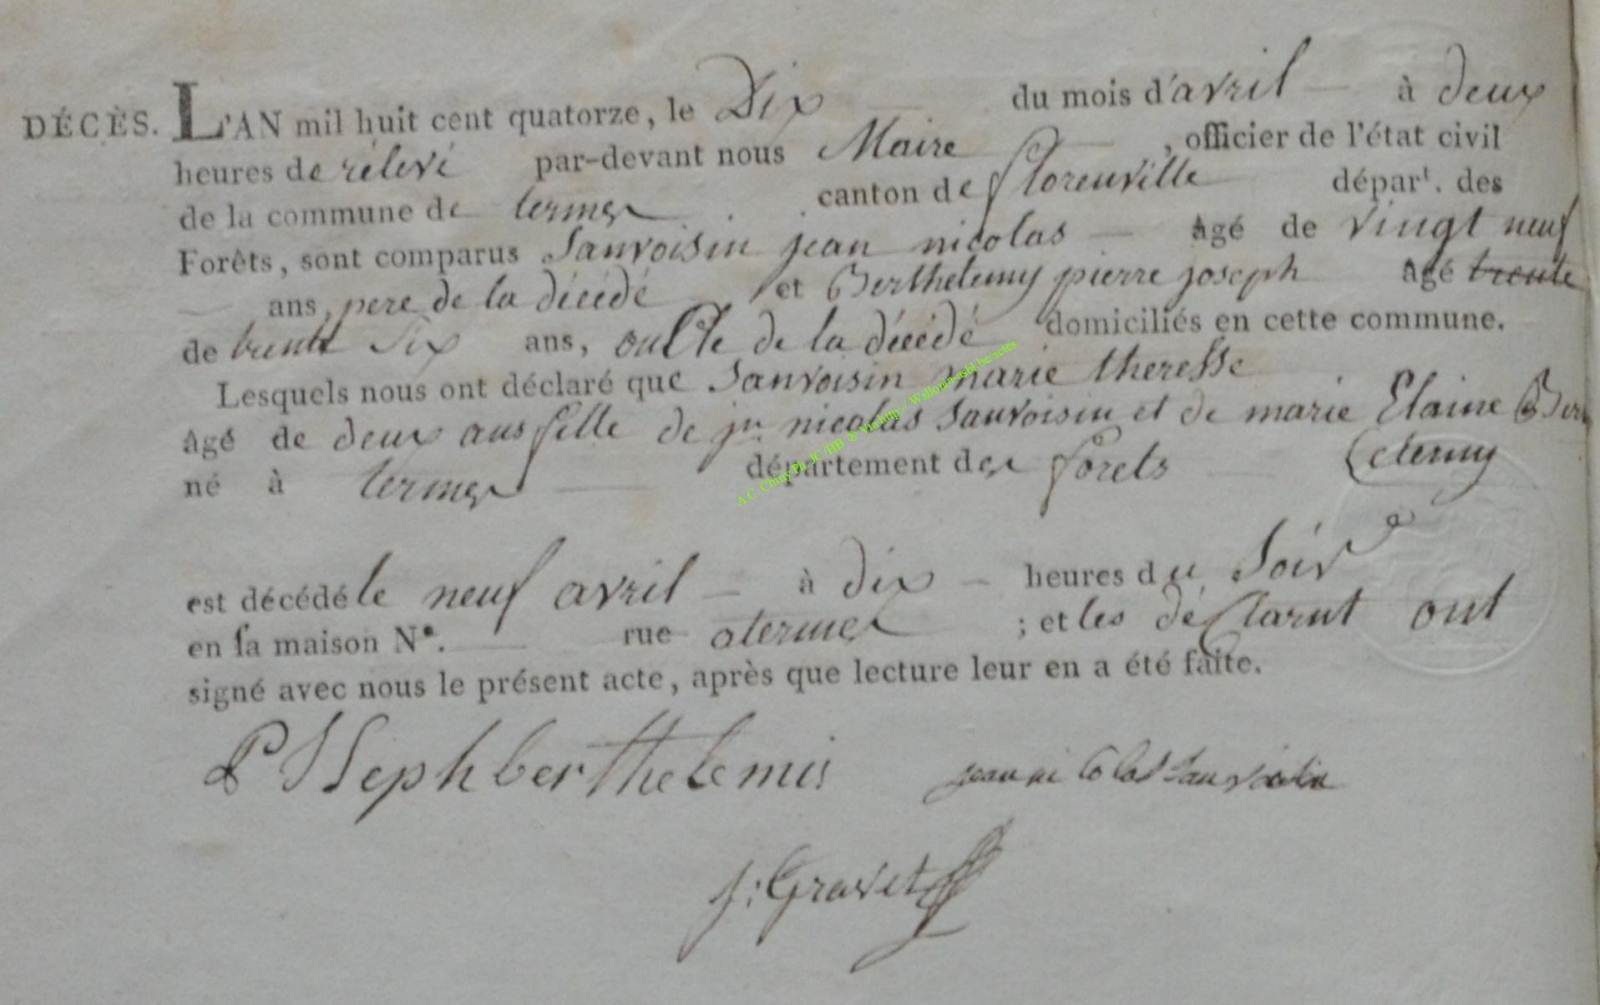 DÉCÈS. L'AN mil huit cent quatorze, le Dix du mois d'avril à deux
heures de rélevé par-devant nous Maire , officier de l'état civil
de la commune de termes canton de florenvilleépar^t. des
Forêts, sont comparus Sanvoisin jean nicolas âgé de vingt neuf
ans, pere de la décédé et Berthelemy pierre joseph âgé trente
de trente Six ans, de la décédé domiciliés en cette commune.
Lesquels nous ont déclaré que Sanvoisin marie theresse
âgé de deux ans fille de jn nicolas Sanvoisin et de marie Elaine Ber
né à termes département des forets telemy
est décédé le neuf avril à dix heures du Soir
en sa maison N°. rue a termes ; et les déClarnt ont
signé avec nous le présent acte, après que lecture leur en a été faite.
P Jseph berthelemis jean nicolas Sanvoisin
j: Gravet